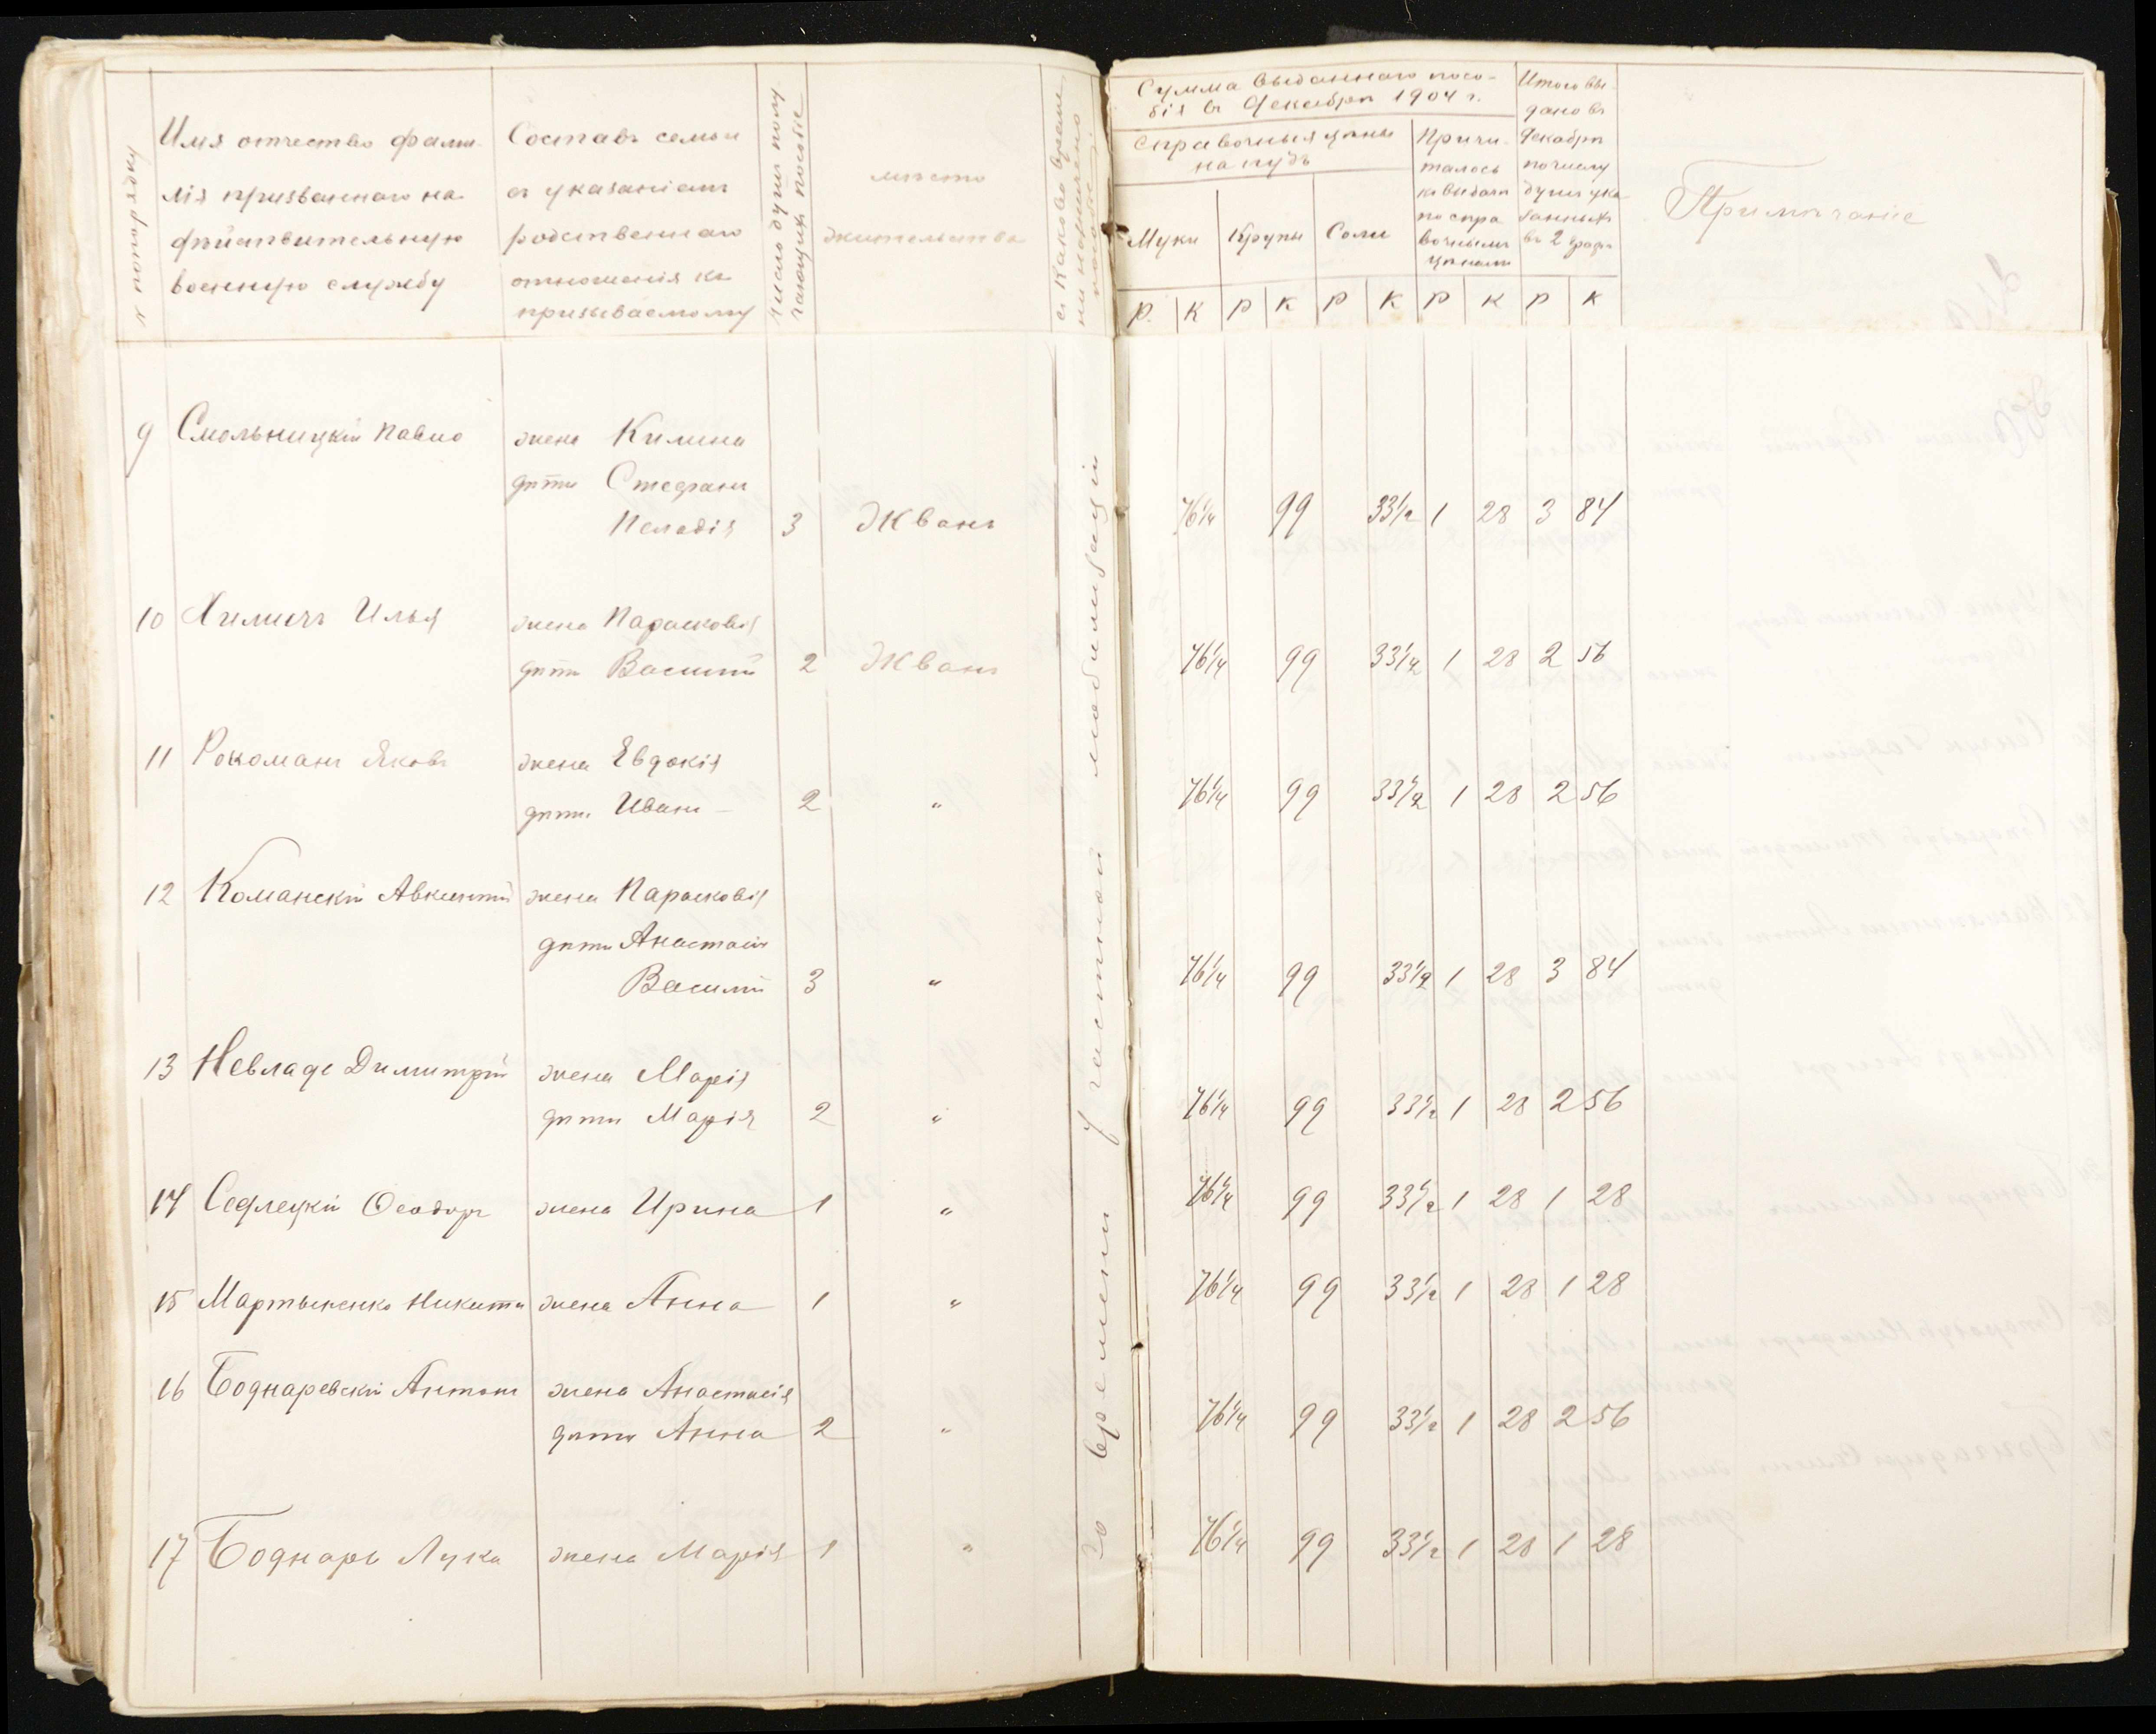 № по порядку
Имя отчество фами-
лія призваннаго на
дѣйствительную
военную службу
Составъ семьи
съ указаніемъ
родственнаго
отношенія къ
призываемому
Число душъ полу-
чающихъ пособіе
мѣсто
жительства
съ какова време-
ни назначено
пособіе
Сумма выданнаго посо-
бія въ Декабрѣ 1904 г.
Справочныя цѣны
на пудъ
Муки
Крупы
Соли
Причи-
талось
къ выдачѣ
по спра-
вочнымъ
цѣнамъ
Итого вы-
дано въ
Декабрѣ
по числу
душъ ука-
занныхъ
въ 2 графѣ
Примѣчаніе
Р. К Р К Р К Р К Р К
съ времени частной мобилизаціи
9 Смольницкій Павло жена Килина
дѣти Стефанъ
Пелагія 3 Жванъ 76 1/4 99 33 1/2 1 28 3 84
10 Химичъ Илья жена Парасковія
дѣти Василій 2 Жванъ 76 1/4 99 33 1/2 1 28 2 56
11 Рокоманъ Яковъ жена Евдокія
дѣти Иванъ 2 " 76 1/4 99 33 1/2 1 28 2 56
12 Команскій Авксентій жена Парасковія
дѣти Анастасія
Василій 3 " 76 1/4 99 33 1/2 1 28 3 84
13 Невладе Димитрій жена Марія
дѣти Марія 2 " 76 1/4 99 33 1/2 1 28 2 56
14 Седлецкій Ѳеодоръ жена Ирина 1 " 76 1/4 99 33 1/2 1 28 1 28
15 Мартыненко Никита жена Анна 1 " 76 1/4 99 33 1/2 1 28 1 28
16 Боднаревскій Антонъ жена Анастасія
дѣти Анна 2 " 76 1/4 99 33 1/2 1 28 2 56
17 Боднаръ Лука жена Марія 1 " 76 1/4 99 33 1/2 1 28 1 28